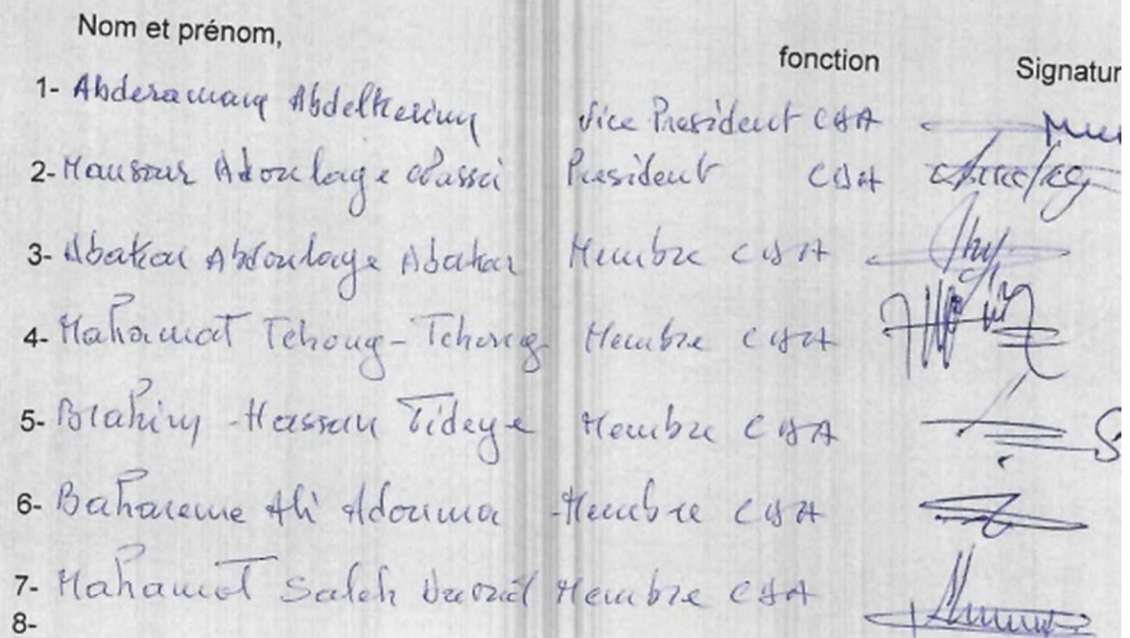 Nom et prénom, fonction Signatur
1- Abderamane Abdelkerim Vice President CHA
2- Mansour Adoulaye President CHA
3- Abakar Abdoulaye Abakar Membre CHA
4- Mahamat Tchong-Tchong Membre CHA
5- Brahim Hassan Tideye Membre CHA
6- Ali Adouma Membre CHA
7- Mahamat Saleh Membre CHA
8-